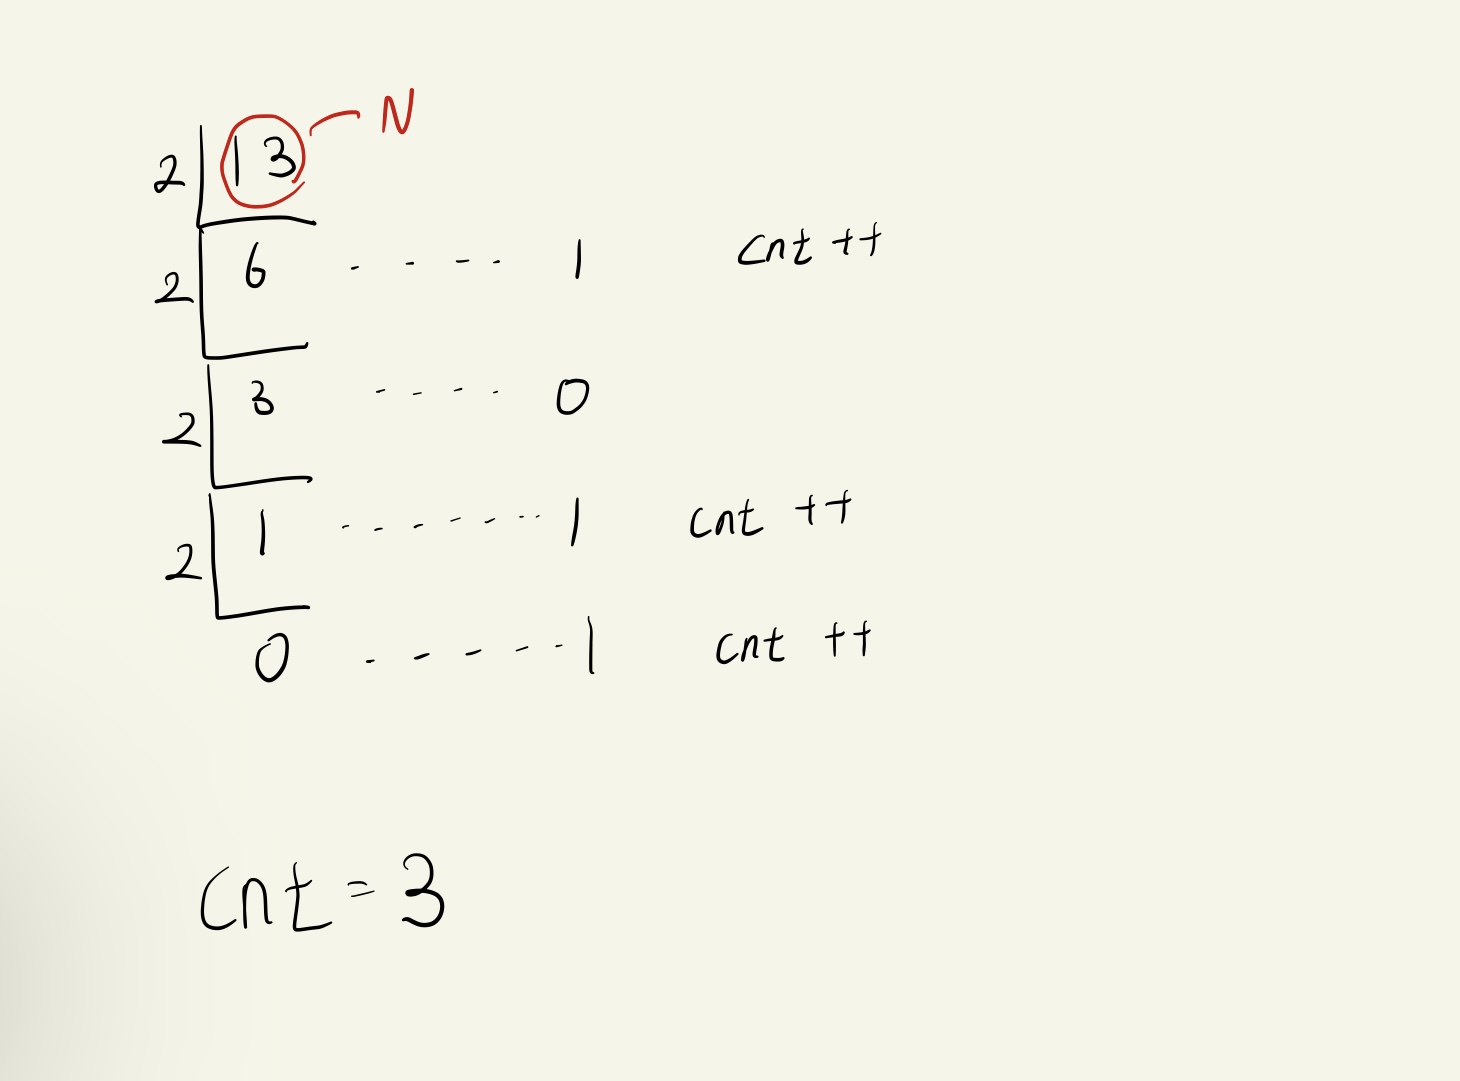 N
2 13
2 6 - - - - 1 cnt ++
2 3 - - - - 0
2 1 - - - - - - - 1 cnt ++
0 - - - - - 1 cnt ++
cnt = 3